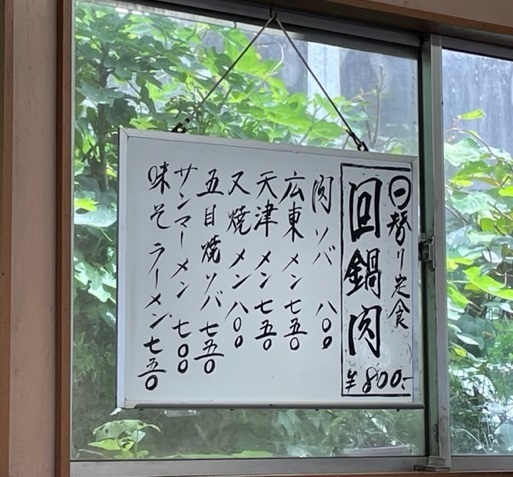 日替り定食
回鍋肉
¥800-
肉ソバ 八〇〇
広東メン 七五〇
天津メン 七五〇
叉焼メン 八〇〇
五目焼ソバ 七五〇
サンマーメン 七〇〇
味そラーメン 七五〇